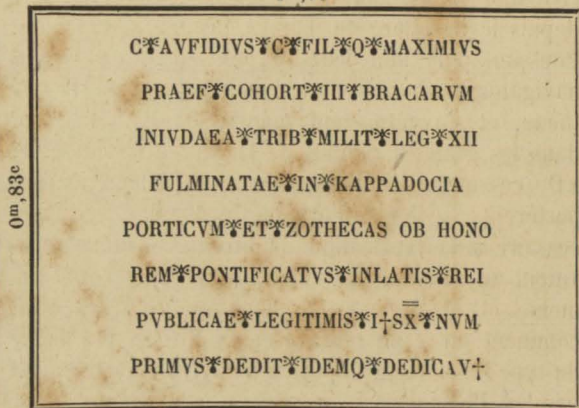 0m,83c
C❦AVFIDIVS❦C❦FIL❦Q❦MAXIMIVS
PRAEF❦COHORT❦III❦BRACARVM
INIVDAEA❦TRIB❦MILIT❦LEG❦XII
FULMINATAE❦IN❦KAPPADOCIA
PORTICVM❦ET❦ZOTHECAS OB HONO
REM❦PONTIFICATVS❦INLATIS❦REI
PVBLICAE❦LEGITIMIS❦I†SX̿❦NVM
PRIMVS❦DEDIT❦IDEMQ❦DEDICAV†